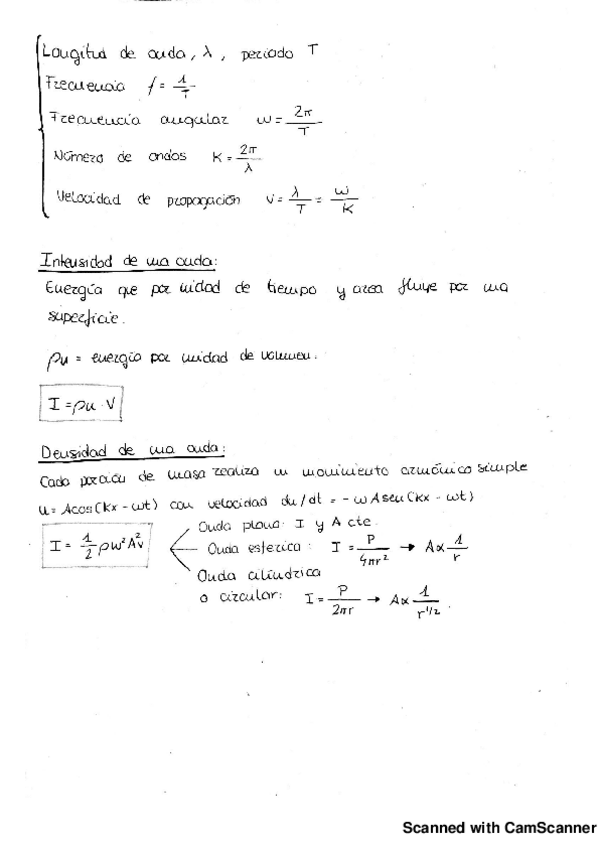 Longitud de onda, λ, periodo T
Frecuencia f = 1/T
Frecuencia angular ω = 2π/T
Número de ondas K = 2π/λ
Velocidad de propagación v = λ/T = ω/K
Intensidad de una onda:
Energía que por unidad de tiempo y area fluye por una
superficie.
ρu = energía por unidad de volumen.
I = ρu · V
Densidad de una onda:
Cada porción de masa realiza un movimiento armónico simple
u = A cos(Kx - ωt) con velocidad du/dt = -ωA sen(Kx - ωt)
I = 1/2 ρω²A²v
Onda plana: I y A cte.
Onda esferica: I = P/4πr² → A∝ 1/r
Onda cilíndrica
o circular: I = P/2πr → A∝ 1/r^1/2.
Scanned with CamScanner